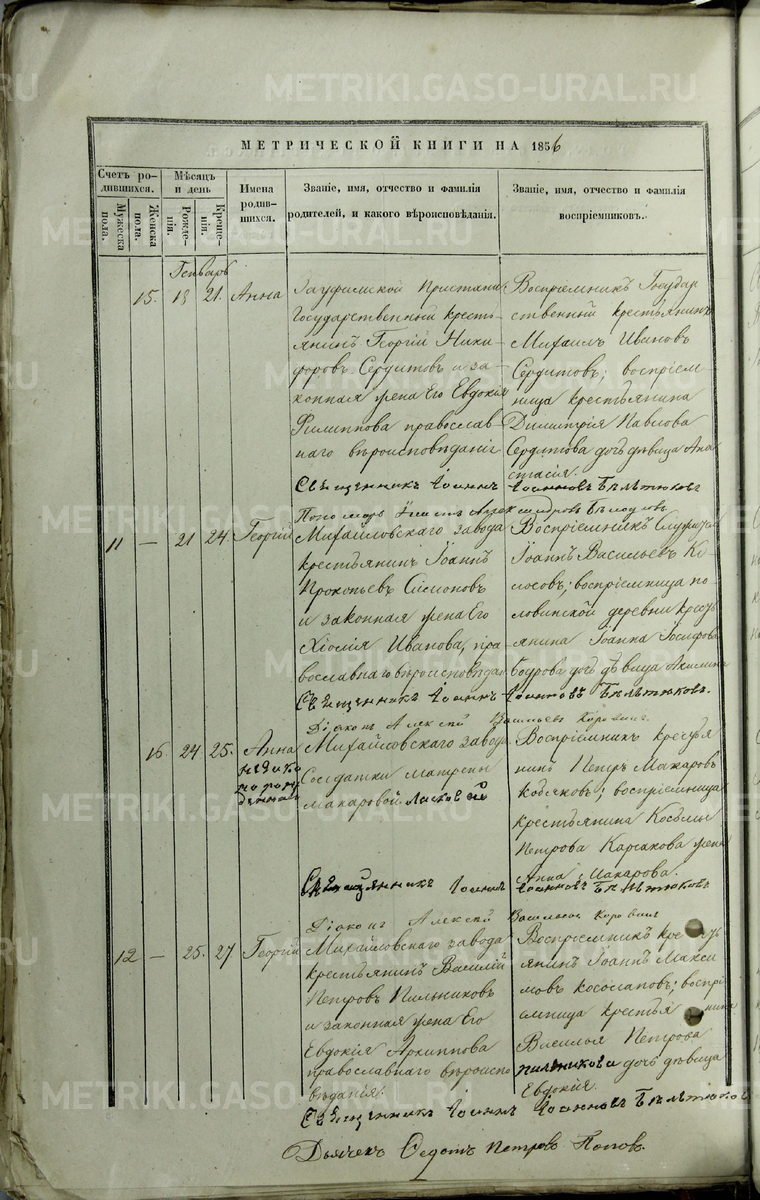 METRIKI.GASO-URAL.RU
МЕТРИЧЕСКОЙ КНИГИ НА 1856
Счетъ родившихся.
Мужеска пола.
Женска пола.
Мѣсяцъ и день
Рожденія.
Крещенія.
Имена родившихся.
Званіе, имя, отчество и фамилія родителей, и какого вѣроисповѣданія.
Званіе, имя, отчество и фамилія воспріемниковъ.
Генварь
15. 18 21. Анна
Зауфимской Пристани
Государственный кресть-
янинъ Георгій Ники-
форовъ Сердитовъ и за-
конная жена Его Евдокія
Филиппова православ-
наго вѣроисповѣданія
Воспріемникъ Государ
ственный крестьянинъ
Михаилъ Ивановъ
Сердитовъ; воспріем-
ница крестьянина
Димитрія Павлова
Сердитова дочь дѣвица Ана
стасія.
Священникъ Іоаннъ Іоанновъ
11 — 21 24. Георгій
Михайловскаго завода
крестьянинъ Іоаннъ
Прокопьевъ
и законная жена Его
Хіонія Иванова пра-
вославнаго вѣроисповѣдан.
Воспріемникъ
Іоаннъ Васильевъ Ко-
лосовъ; воспріемница по-
ловинской деревни кресть
янина Іоанна Іосифова
Бодрова дочь дѣвица Акилина
Священникъ Іоаннъ Іоанновъ
Діаконъ Алексѣй Васильевъ Коровинъ.
16. 24 25. Анна
незаконно
рожденная
Михайловскаго завода
Солдатки Матрены
Макаровой
Воспріемникъ крестья
нинъ Петръ Макаровъ
Кобяковъ; воспріемница
крестьянина Косьмы
Петрова Карсакова жена
Анна Макарова.
Священникъ Іоаннъ Іоанновъ
Діаконъ Алексѣй Васильевъ Коровинъ
12 — 25. 27 Георгій
Михайловскаго завода
крестьянинъ Василій
Петровъ Пильниковъ
и законная жена Его
Евдокія Архиппова
православнаго вѣроиспо
вѣданія.
Воспріемникъ кресть
янинъ Іоаннъ Макси
мовъ Косослаповъ; воспрі
емница крестьянина
Василья Петрова
Пильникова дочь дѣвица
Евдокія.
Священникъ Іоаннъ Іоанновъ
Дьячекъ Федотъ Петровъ Поповъ.